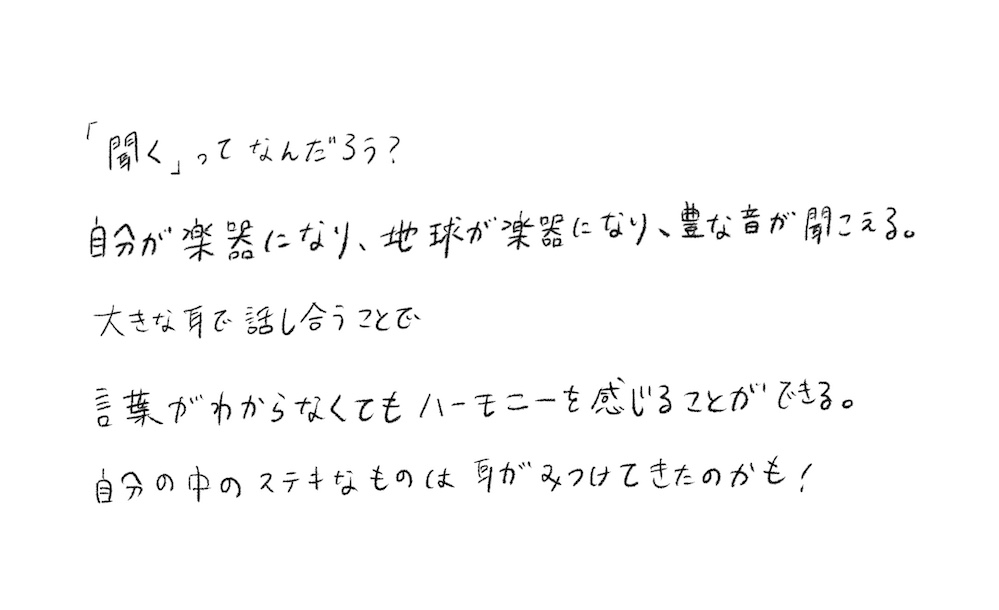 「聞く」ってなんだろう？
自分が楽器になり、地球が楽器になり、豊な音が聞こえる。
大きな耳で話し合うことで
言葉がわからなくてもハーモニーを感じることができる。
自分の中のステキなものは耳がみつけてきたのかも！